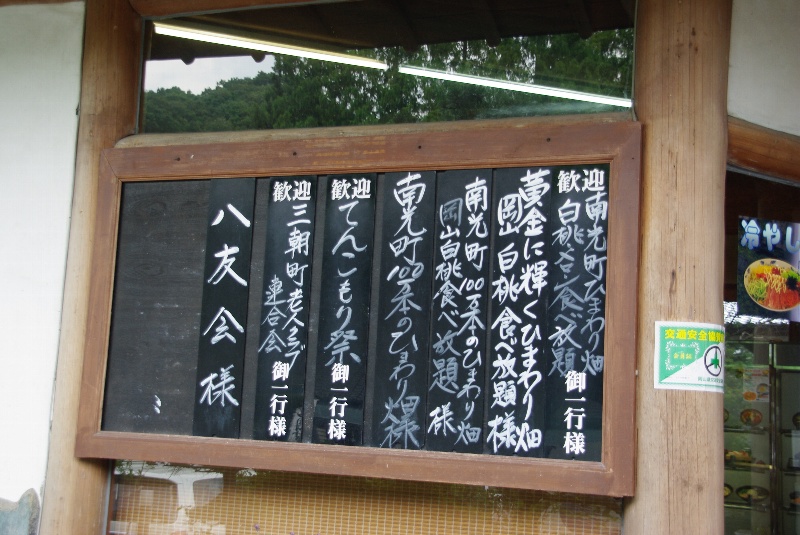 歓迎
南光町ひまわり畑
白桃食べ放題
御一行様
黄金に輝くひまわり畑
岡山白桃食べ放題様
南光町100万本のひまわり畑
岡山白桃食べ放題様
南光町100万本のひまわり畑様
歓迎
てんこもり祭
御一行様
歓迎
三朝町老人クラブ
連合会
御一行様
八友会様
冷やし
交通安全協